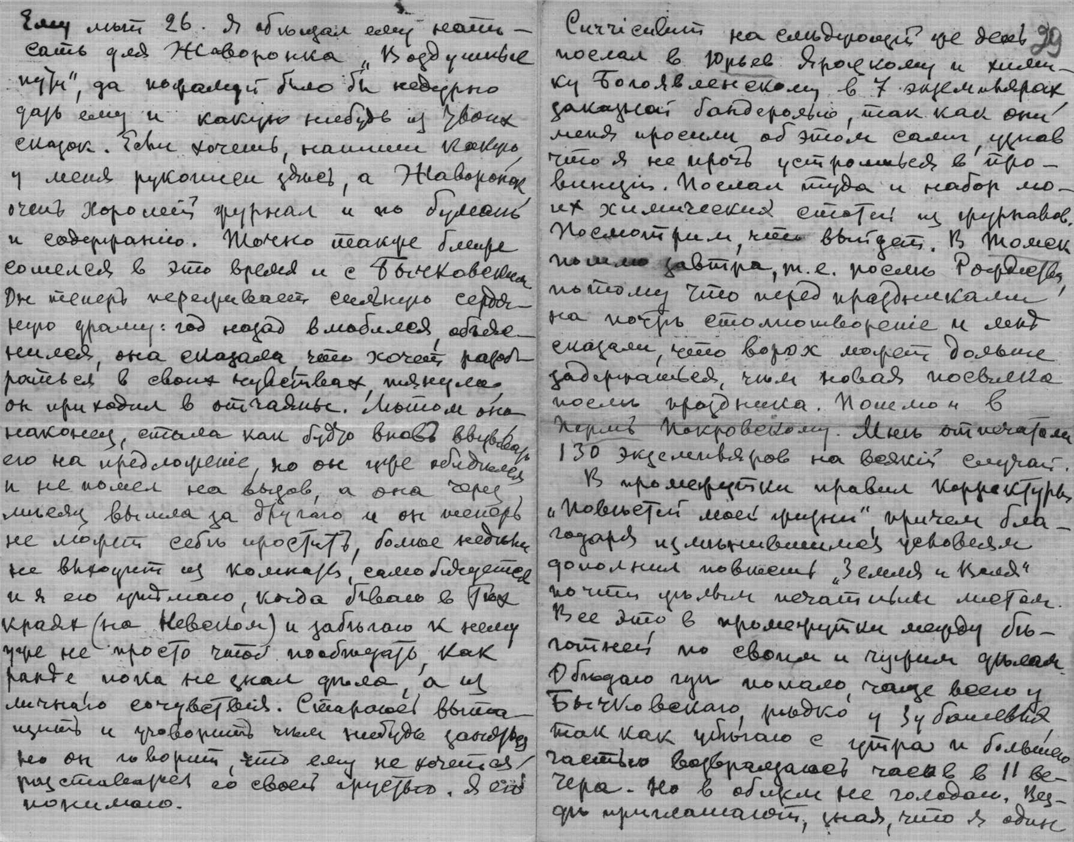 Ему лѣт 26. Я обѣщал ему напи-
сать для Жаворонка „Воздушные
пути“, да пожалуй было бы недурно
дать ему и какую нибудь из твоих
сказок. Если хочешь, напиши какую,
у меня рукописи здѣсь, а Жаворонок
очень хороший журнал и по бумагѣ
и содержанию. Точно также ближе
сошелся в это время и с Бычковским.
Он теперь переживает сильную сердеч-
ную драму: год назад влюбился, объяс-
нился, она сказала что хочет разоб-
раться в своих чувствах, тянула
он приходил в отчаянье. Потом она
наконец, стала как будто вновь вызывать
его на предложение, но он уже обидился
и не пошел на вызов, а она через
мѣсяц вышла за другого и он теперь
не может себѣ простить, больше недѣли
не выходит из комнаты,
и я его, когда бываю в тѣх
краях (на Невском) и забѣгаю к нему
уже не просто чтоб пообѣдать, как
раньше пока не знал дѣла, а из
личнаго сочувствия. Стараюсь выта-
щить и уговорить чѣм нибудь заняться
но он говорит, что ему не хочется
разставаться со своей грустью. Я его
понимаю.
39
на слѣдующий же день
послал в Юрьев Яроцкому и хими-
ку Богоявленскому в 7 экземплярах
заказной бандеролью, так как они
меня просили об этом сами, узнав
что я не прочь устроиться в про-
винции. Послал туда и набор мо-
их химических статей из журналов.
Посмотрим, что выйдет. В Томск
пошлю завтра, т.е. послѣ Рождества,
потому что перед праздниками
на почтѣ столпотворение и мнѣ
сказали, что ворох может дольше
задержаться, чѣм новая посылка
послѣ праздника. Пошлю и в
Пермь Покровскому. Мнѣ отпечатали
130 экземпляров на всякий случай.
В промежутки правил корректуры
„Повѣстей моей жизни“, причем бла-
годаря измѣнившимся условиям
дополнил повѣсть „Земля и Воля“
почти цѣлым печатным листом.
Все это в промежутки между бѣ-
готней по своим и чужим дѣлам.
Обѣдаю гдѣ попало, чаще всего у
Бычковскаго, рѣдко у Зубашевых,
так как убѣгаю с утра и большею
частью возвращаюсь часов в 11 ве-
чера. Но в общем не голодаю. Вез-
дѣ приглашают, зная, что я один